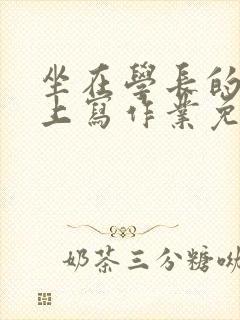 坐在學長的
上寫作業免
奶茶三分糖呦